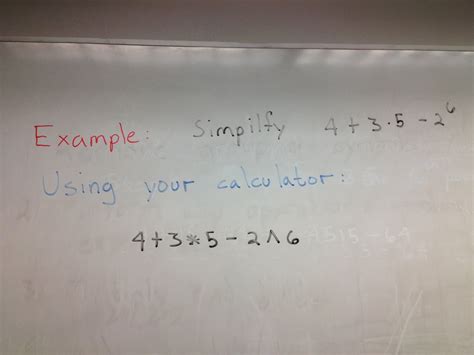 Example: Simpilfy 4 + 3 · 5 - 2⁶
Using your calculator:
4+3*5-2^6